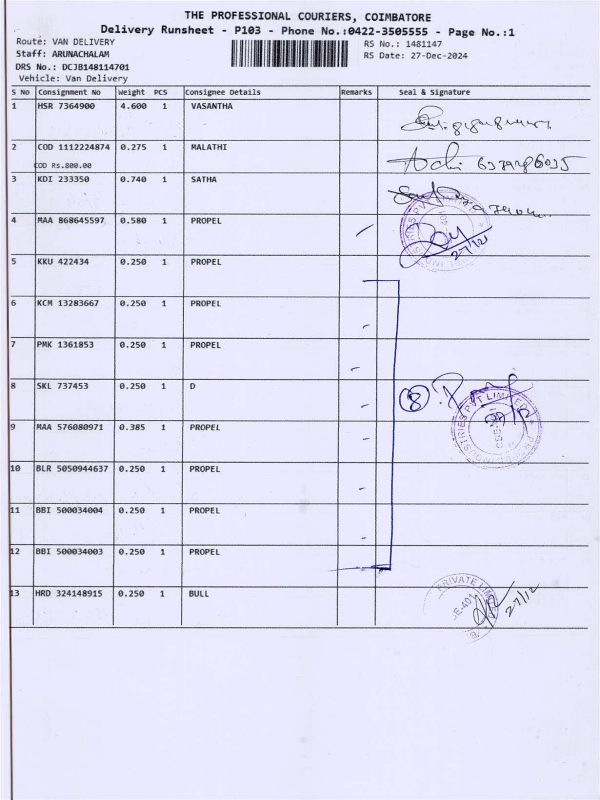 THE PROFESSIONAL COURIERS, COIMBATORE
Delivery Runsheet - P103 - Phone No.:0422-3505555 - Page No.:1
Route: VAN DELIVERY RS No.: 1481147
Staff: ARUNACHALAM RS Date: 27-Dec-2024
DRS No.: DCJB148114701
Vehicle: Van Delivery
S No Consignment No Weight PCS Consignee Details Remarks Seal & Signature
1 HSR 7364900 4.600 1 VASANTHA
2 COD 1112224874 0.275 1 MALATHI
COD Rs.800.00
3 KDI 233350 0.740 1 SATHA
4 MAA 868645597 0.580 1 PROPEL
27/12
5 KKU 422434 0.250 1 PROPEL
6 KCM 13283667 0.250 1 PROPEL
7 PMK 1361853 0.250 1 PROPEL
8 SKL 737453 0.250 1 D 8
9 MAA 576080971 0.385 1 PROPEL
10 BLR 5050944637 0.250 1 PROPEL
11 BBI 500034004 0.250 1 PROPEL
12 BBI 500034003 0.250 1 PROPEL
13 HRD 324148915 0.250 1 BULL 27/12